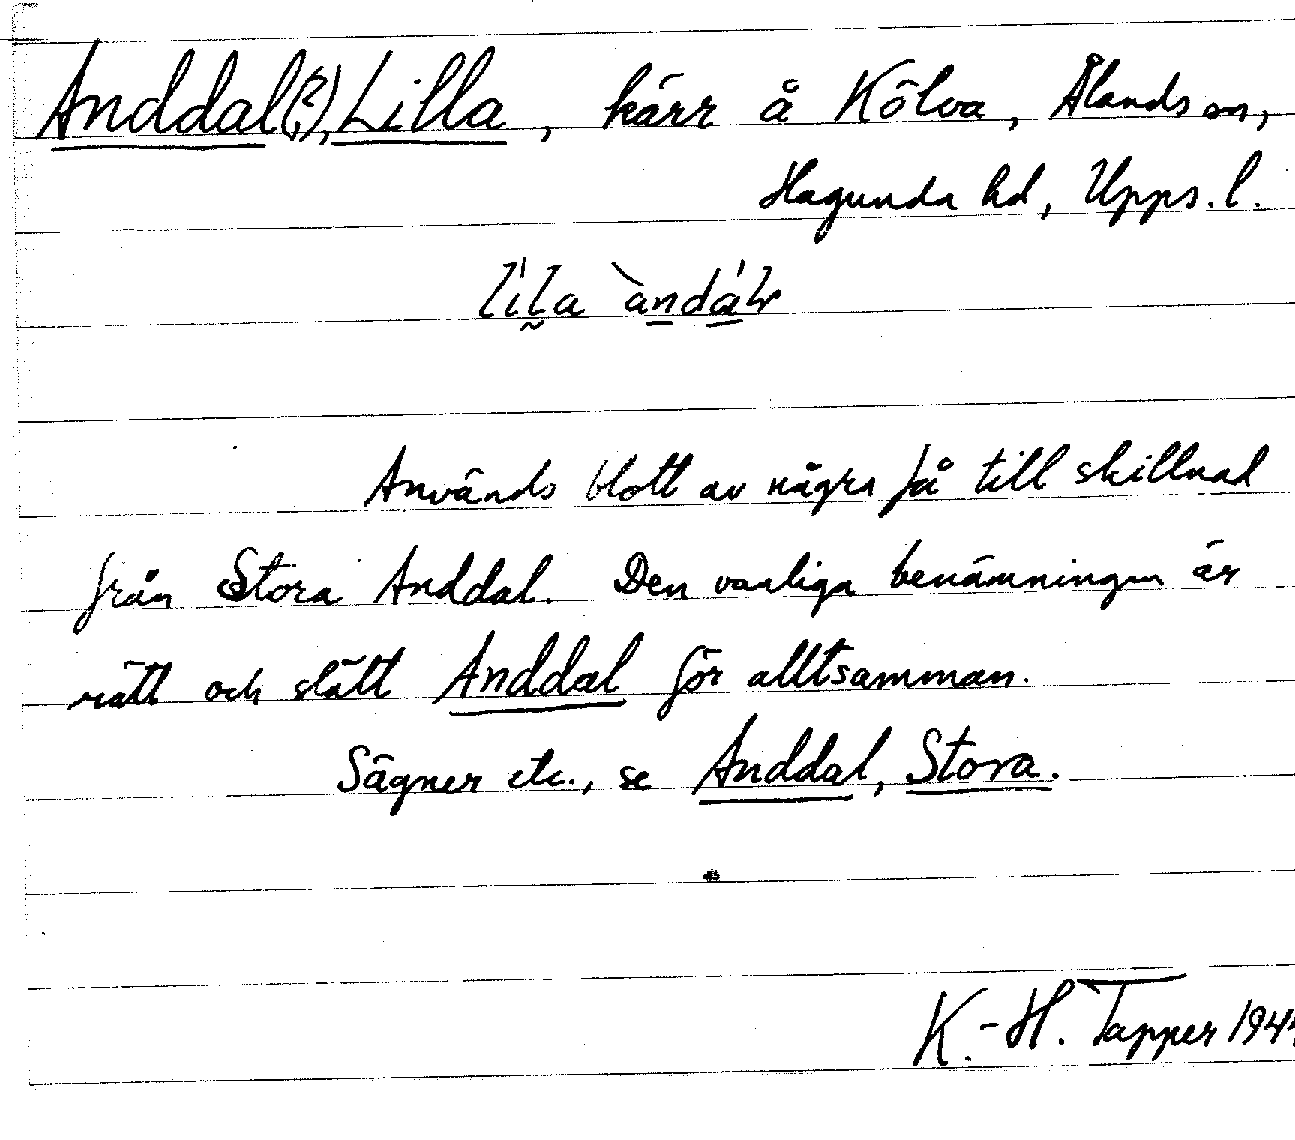 Anddal(?), Lilla, kärr å Kölva, Ålands sn,
Hagunda hd, Upps. l.
Används blott av några få till skillnad
från Stora Anddal. Den vanliga benämningen är
rätt och slätt Anddal för alltsamman.
Sägner etc., se Anddal, Stora.
K.-H. Tapper